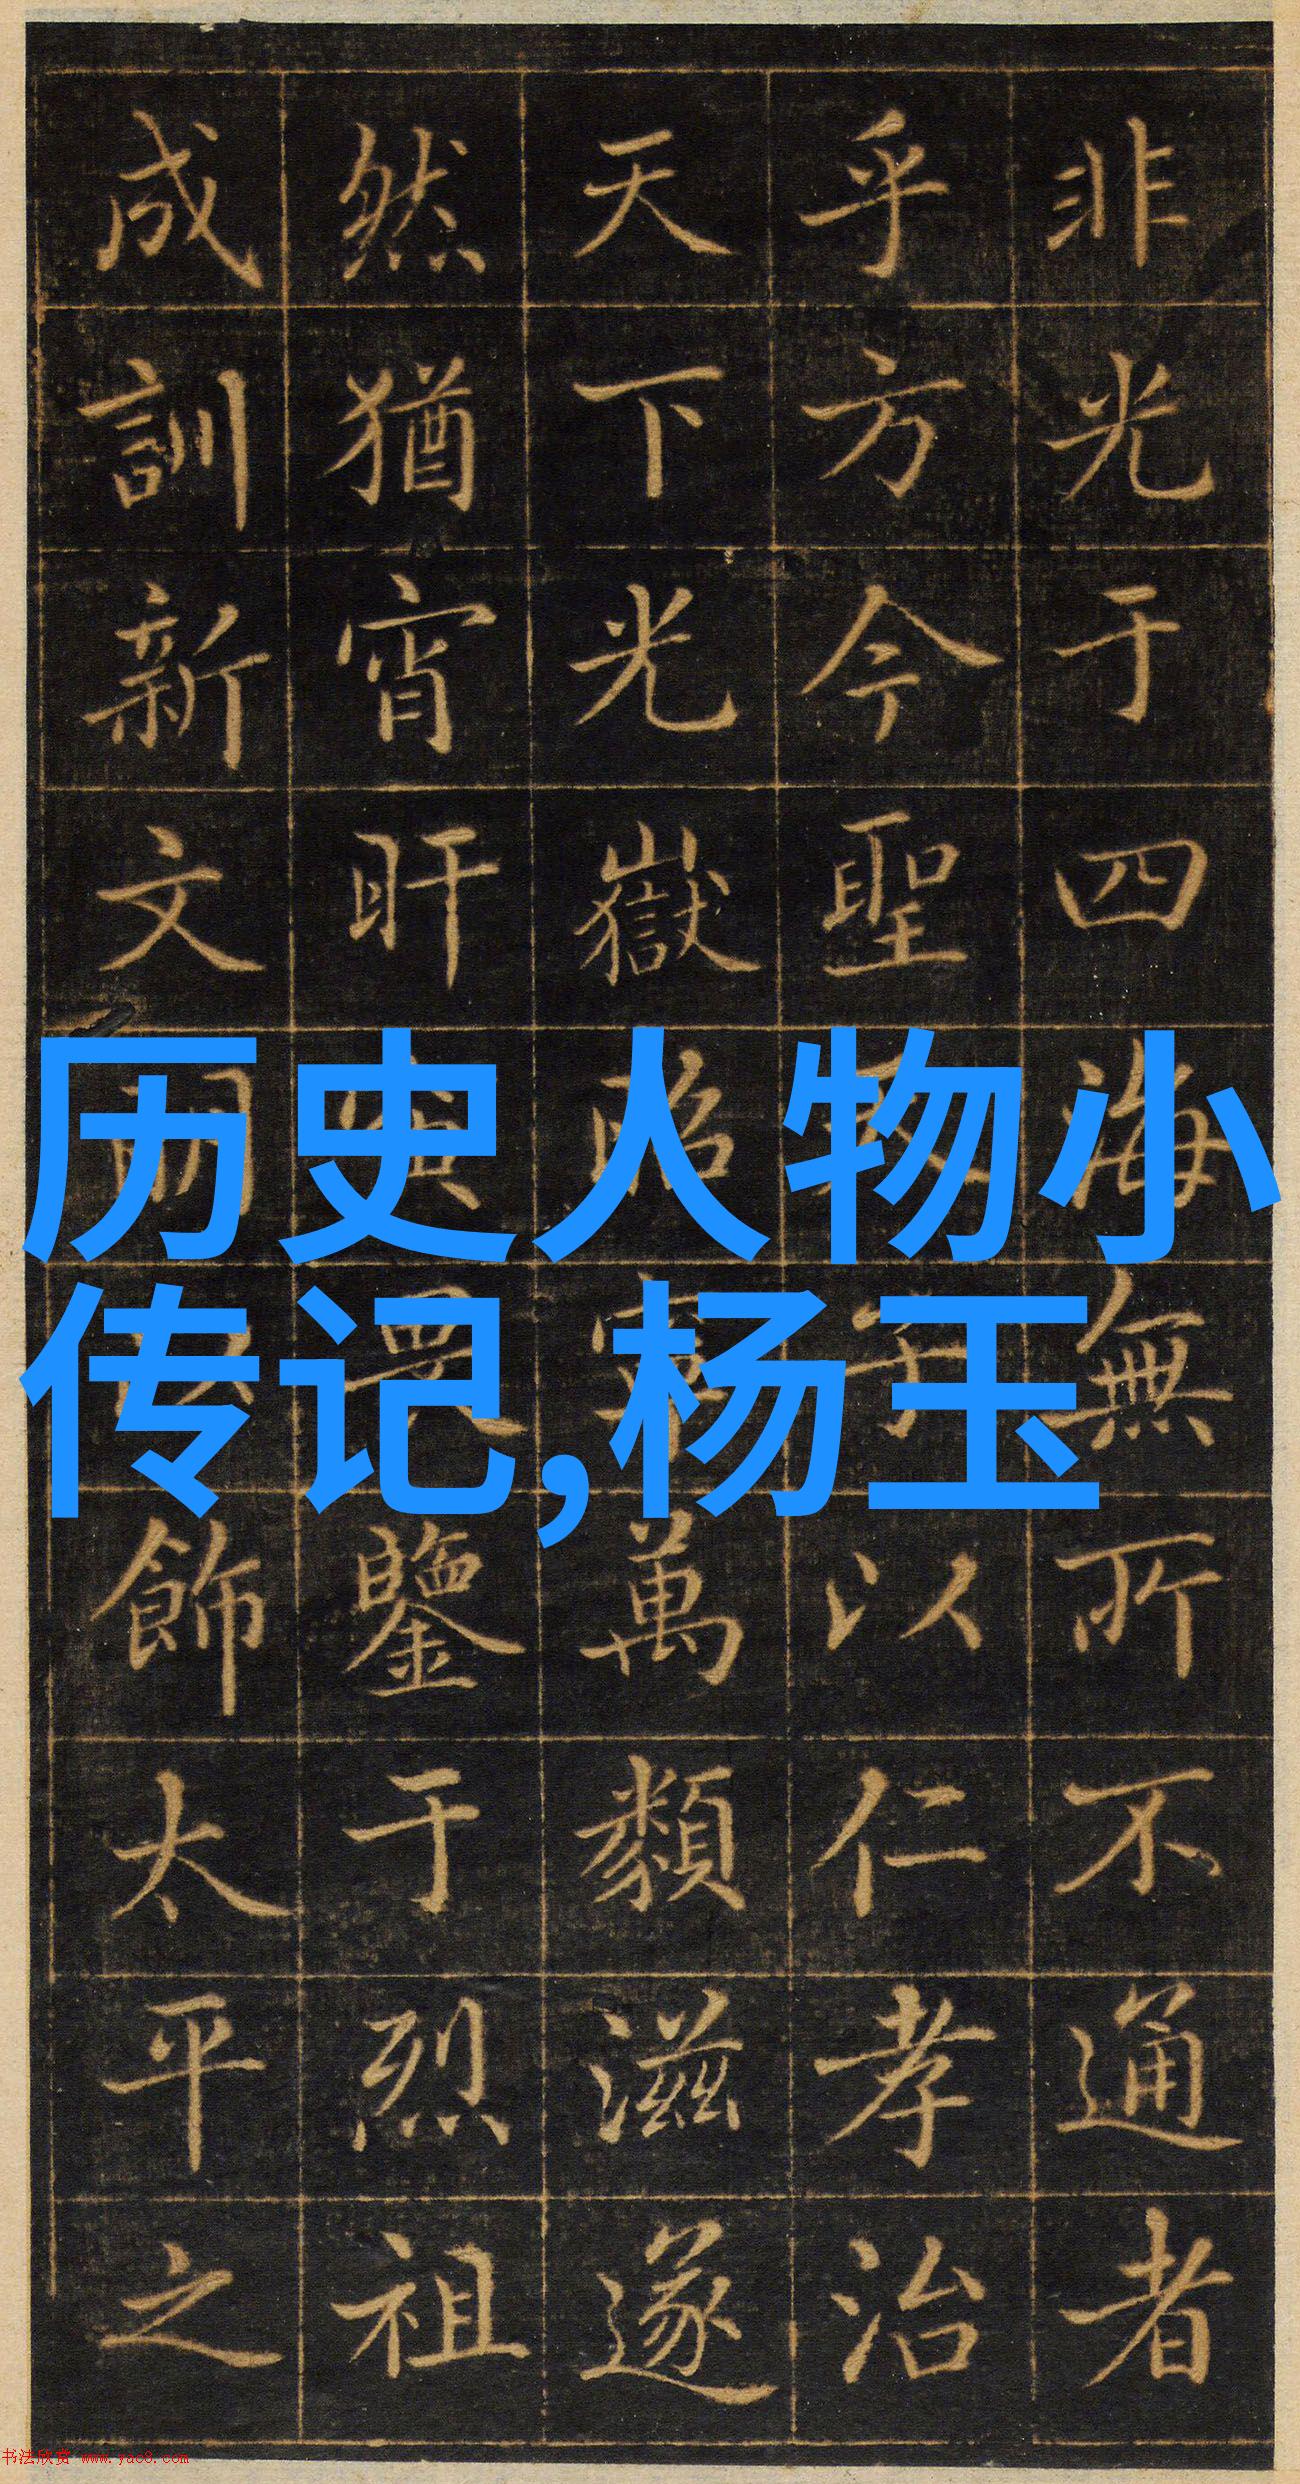 非光于四海無所不通者
乎方今聖子以仁孝治
天下光嶽昭萬類滋遂
然猶宵旰寅畏鑒于烈祖
成訓新文明飾太平之
历史人物小
传记,杨玉
书法欣赏 www.yac8.com